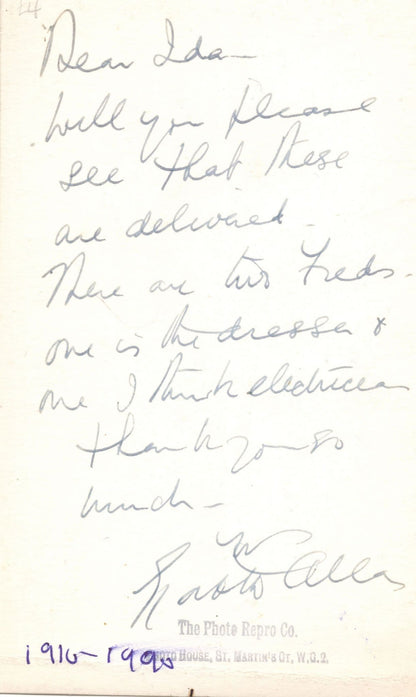 Dear Ida -
Will you please
see that these
are delivered -
There are two Freds -
one is the dresser &
one I think electrician
thank you so
much -
Allen
The Photo Repro Co.
House, St. Martin's Ct, W.C.2.
1916-1990